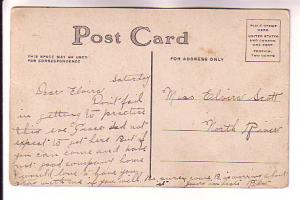 Post Card
THIS SPACE MAY BE USED
FOR CORRESPONDENCE
FOR ADDRESS ONLY
PLACE STAMP HERE
UNITED STATES
AND CANADA
ONE CENT
FOREIGN
TWO CENTS
Saturday
Dear Elvira
Don't fail
in getting to practice
this eve. Grace did not
expect to get here. But if
you can come and have
not good company home
I would love to have you
stay with me if you will.
Miss Elvira Scott
North River